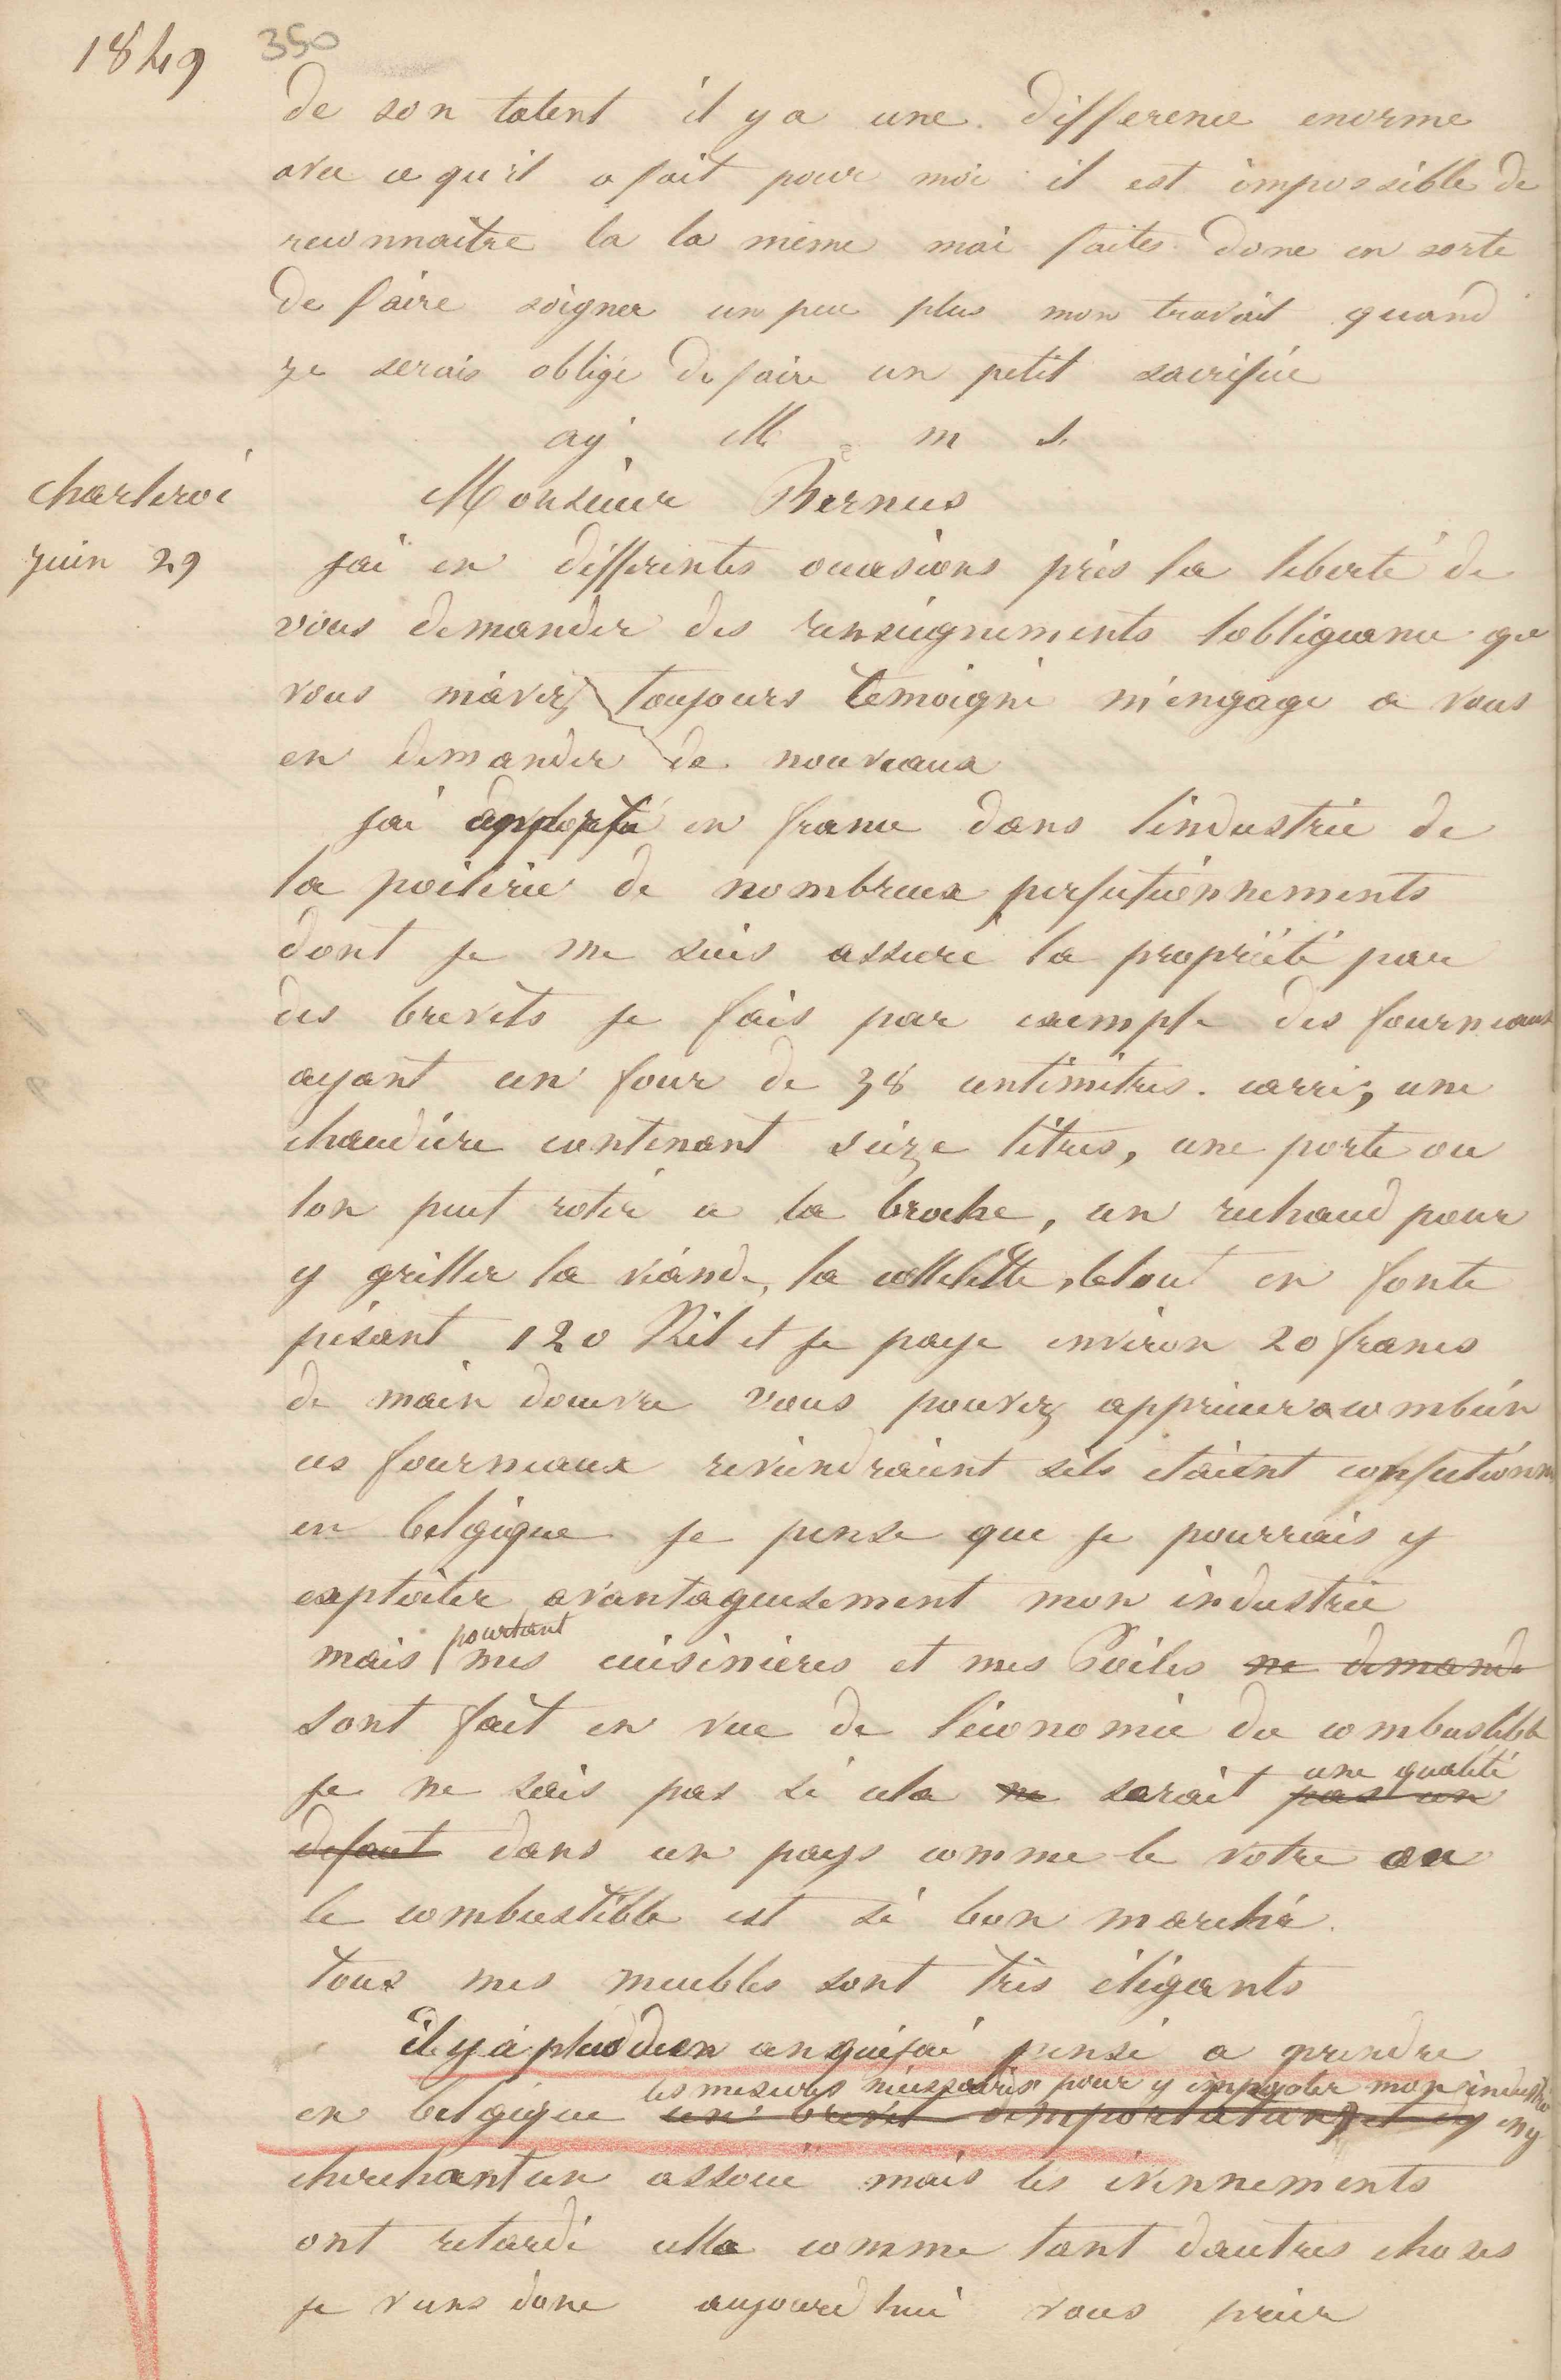 1849
350
de son talent il y a une difference enorme
avec ce qu'il a fait pour moi il est impossible de
reconnaitre la la même mai faites donc en sorte
de faire soigner un peu plus mon travail quand
je serais obligé de faire un petit sacrifice
ay M m s
charleroi
juin 29
Monsieur Bernus
jai en differintes occasions pris la liberté de
vous demander des renseignements lobligeance que
vous m'avez toujours temoigné m'engage a vous
en demander de nouveaux
jai apporté en france dans lindustrie de
la poilerie de nombreux perfectionnements
dont je me suis assuré la propriété par
des brevets je fais par exemple des fourneaux
ayant un four de 38 centimetres. carré, une
chaudiere contenant seize litres, une porte ou
lon peut rotir a la broche, un rechaud pour
y griller la viande, la cottelette, le tout en fonte
pesant 120 Kil et je paye environ 20 francs
de main douvre vous pouvez apprecier a combien
ces fourneaux reviendraient sils etaient confectionn
en belgique je pense que je pourrais y
exploiter avantageusement mon industrie
mais pourtant mes cuisinieres et mes Poiles ne demande
sont fait en vue de léconomie du combustible
je ne sais pas si cela ne sarait pas un une qualité
defaut dans un pays comme le votre ou
le combustible est si bon marché.
tous mes meubles sont très élégants
il y a plus d'un an que jai pensé a prendre
les mesures necessaires pour y importer mon industrie
en belgique un brevet d'importation et dy en y
cherchant un associé mais les evennements
ont retardé cella comme tant dautres choses
je viens donc aujourdhui vous prier